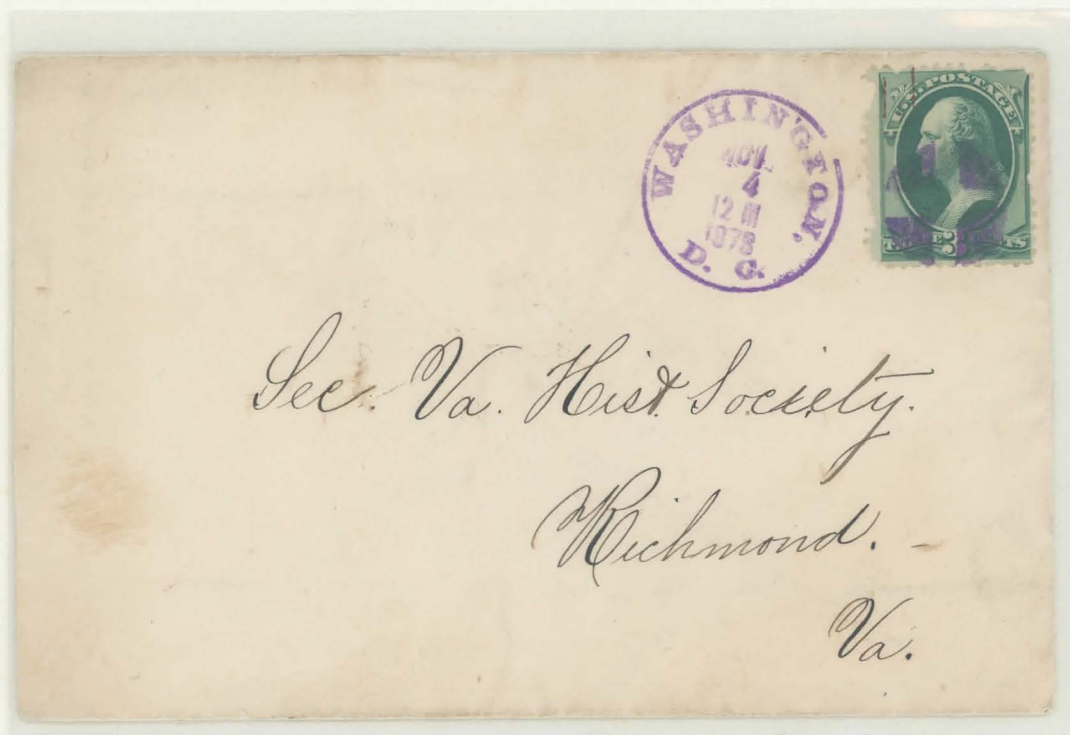 WASHINGTON,
NOV.
4
12 M
1878
D. C.
U.S. POSTAGE
THREE 3 CENTS
Sec. Va. Hist. Society.
Richmond.
Va.